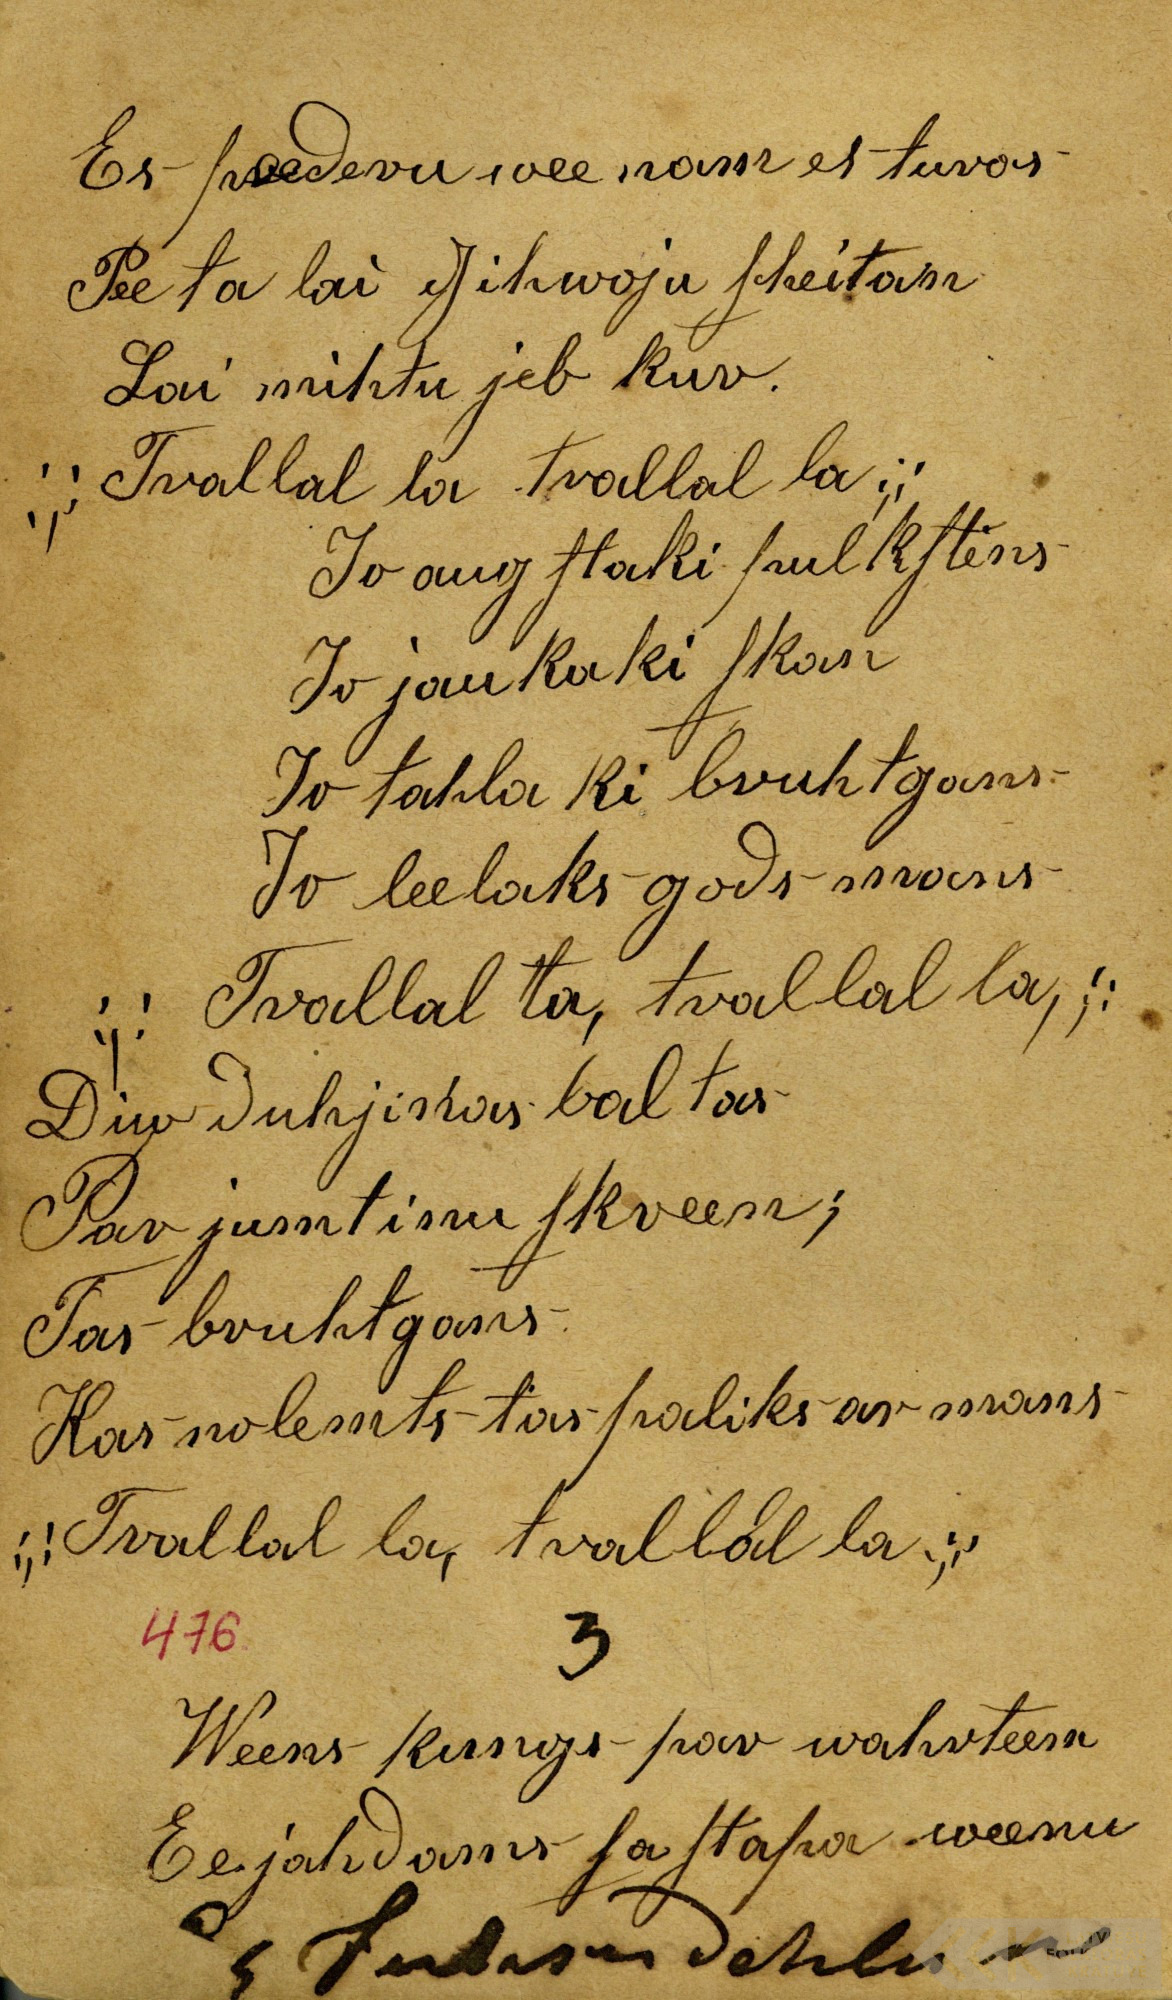 Es peedevu weenam es tuvos
Pee ta lai dſihwoju ſkeitan
Lai mihtu jeb kur.
;; Trallal la trallal la ;;
Jo augſtaki pulkſtens
Jo jaukaki ſkan
Jo tahlaki bruhtgans
Jo leelaks gods mans
;; Trallal la, trallal la, ;;
Diw duhjinas baltas
Par jumtinu ſkreen;
Tas bruhtgans
Kas nolemts tas paliks ar mans
;; Trallal la, trallal la ;;
476 3
Weens kungs par wahrteem
Eejahdams ſaſtapa weenu
dehlu